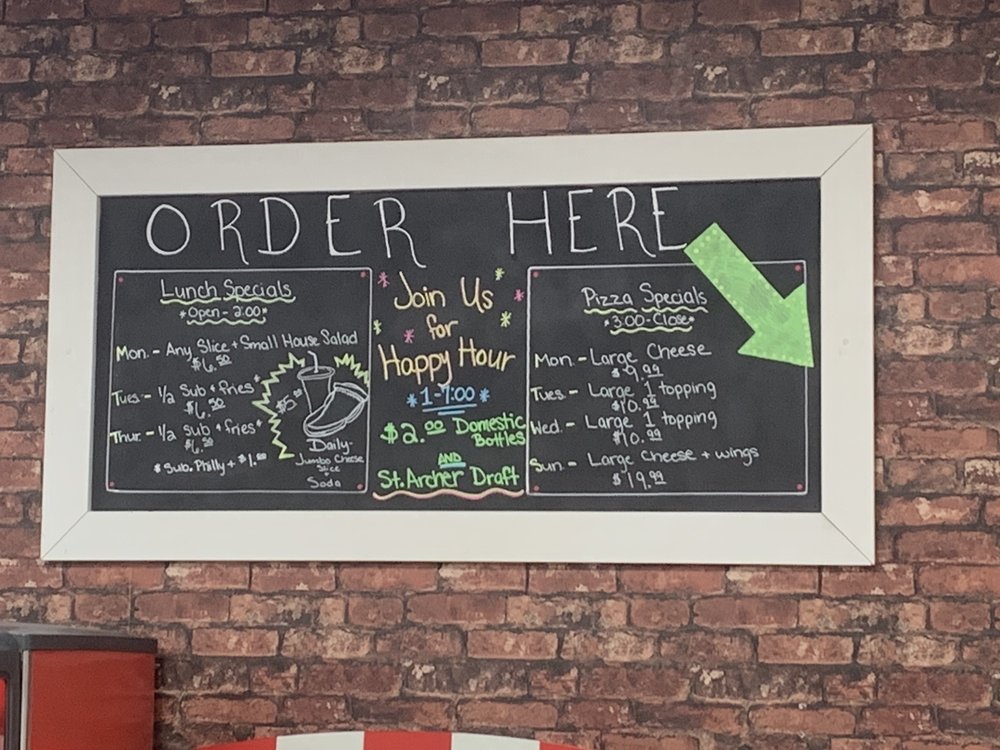 ORDER HERE
Lunch Specials
*Open - 2:00*
Mon. - Any Slice + Small House Salad
$6.50
Tues - 1/2 Sub + fries*
$6.50
Thur - 1/2 Sub + fries*
$6.50
* Sub. Philly + $1.00
Daily-
Jumbo Cheese
Slice
+
Soda
Join Us
for
Happy Hour
*1-7:00*
$2.00 Domestic
Bottles
AND
St. Archer Draft
Pizza Specials
*3:00-Close*
Mon - Large Cheese
$9.99
Tues - Large 1 topping
$10.99
Wed - Large 1 topping
$10.99
Sun - Large Cheese + wings
$19.99